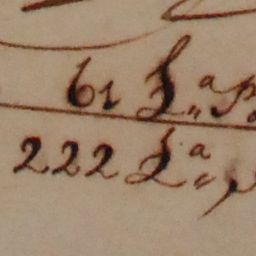 61 L.a p
222 L.a